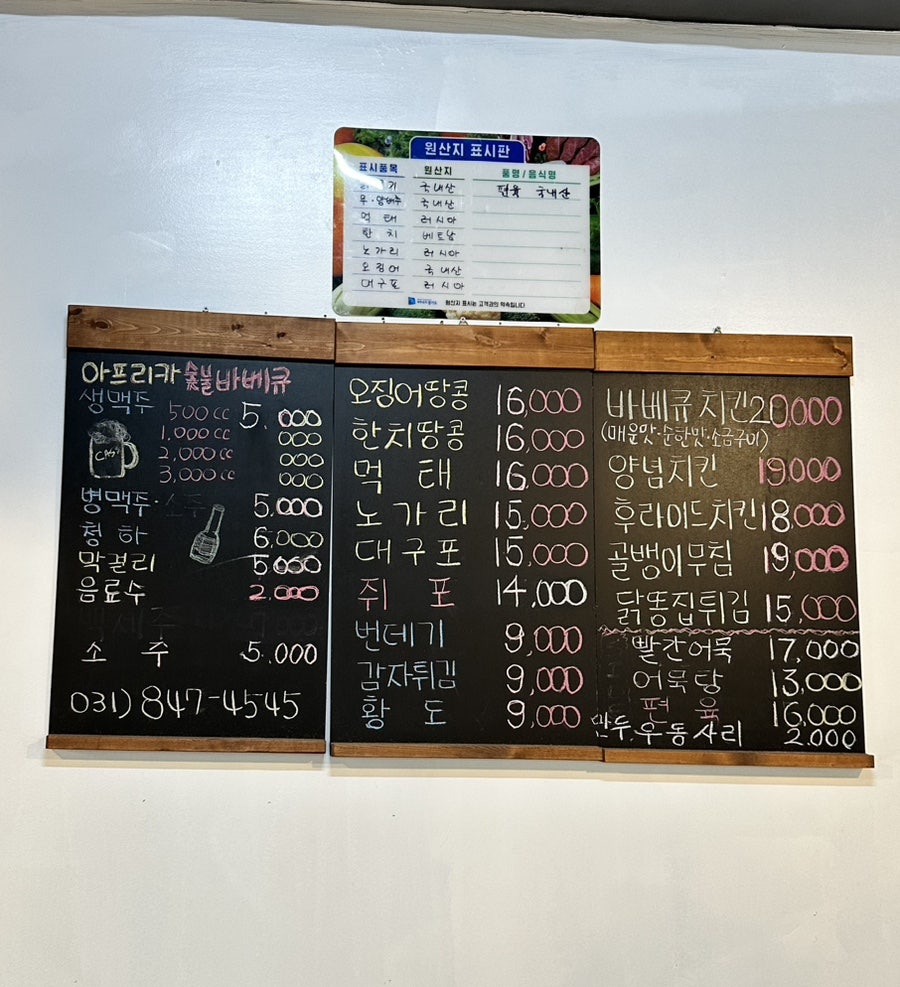 원산지 표시판
표시품목 원산지 품명/음식명
국내산 편육 국내산
무·양배추 국내산
먹태 러시아
한치 베트남
노가리 러시아
오징어 국내산
대구포 러시아
원산지 표시는 고객과의 약속입니다
아프리카 숯불 바베큐
생맥주 500cc 5.000
1,000cc 000
2,000cc 000
3,000cc 000
병맥주·소주 5.000
청하 6,000
막걸리 5000
음료수 2.000
소주 5.000
031) 847-4545
오징어땅콩 16,000
한치땅콩 16,000
먹태 16,000
노가리 15,000
대구포 15,000
쥐포 14,000
번데기 9,000
감자튀김 9,000
황도 9,000
바베큐치킨 20,000
(매운맛·순한맛·소금구이)
양념치킨 19,000
후라이드치킨 18,000
골뱅이무침 19,000
닭똥집튀김 15,000
빨간어묵 17,000
어묵탕 13,000
편육 16,000
만두.우동사리 2.000